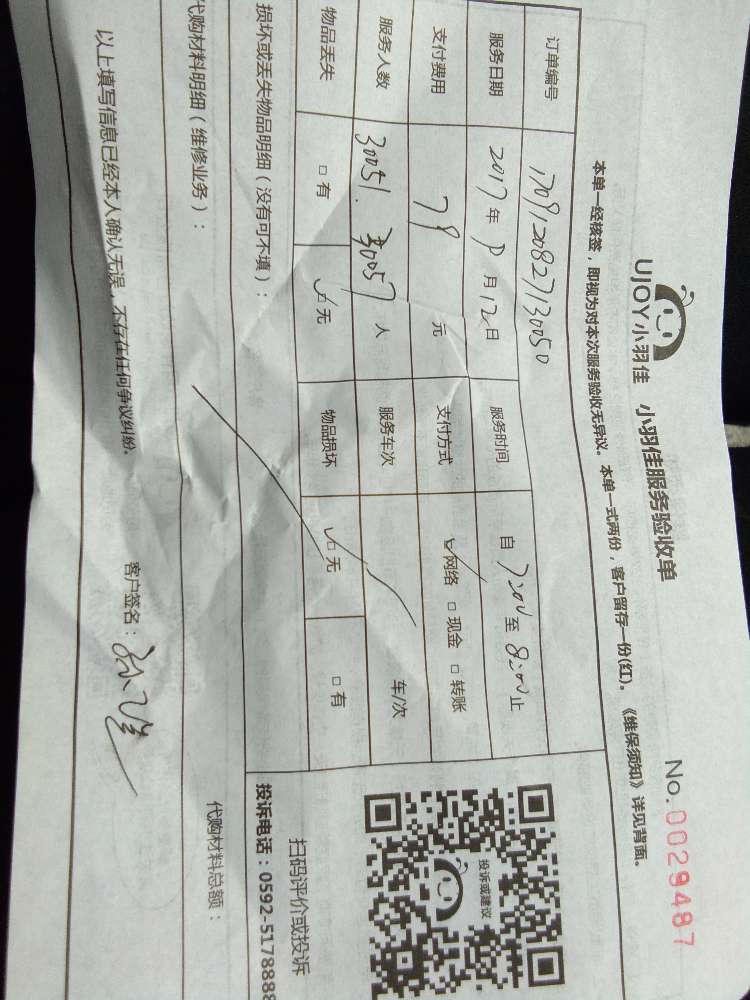 UJOY小羽佳 小羽佳服务验收单 No.0029487
本单一经核签，即视为对本次服务验收无异议。本单一式两份，客户留存一份(红)。《维保须知》详见背面。
订单编号 1709120827130050
服务日期 2017年9月12日 服务时间 自7:00至8:00止
支付费用 79元 支付方式 ☑网络 □现金 □转账
服务人数 30051. 30057人 服务车次 车/次
物品丢失 □有 ☑无 物品损坏 ☑无 □有
损坏或丢失物品明细（没有可不填）：
投诉或建议
扫码评价或投诉
投诉电话：0592-5178888
代购材料明细（维修业务）： 代购材料总额：
以上填写信息已经本人确认无误，不存在任何争议纠纷。 客户签名：